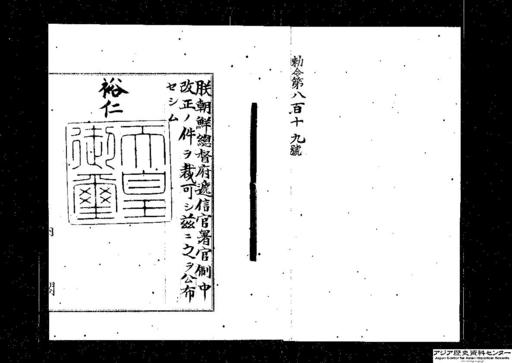 勅令第八百十九號
朕朝鮮總督府遞信官署官制中
改正ノ件ヲ裁可シ茲ニ之ヲ公布
セシム
裕仁
天皇
御璽
内
閣
アジア歴史資料センター
Japan Center for Asian Historical Records